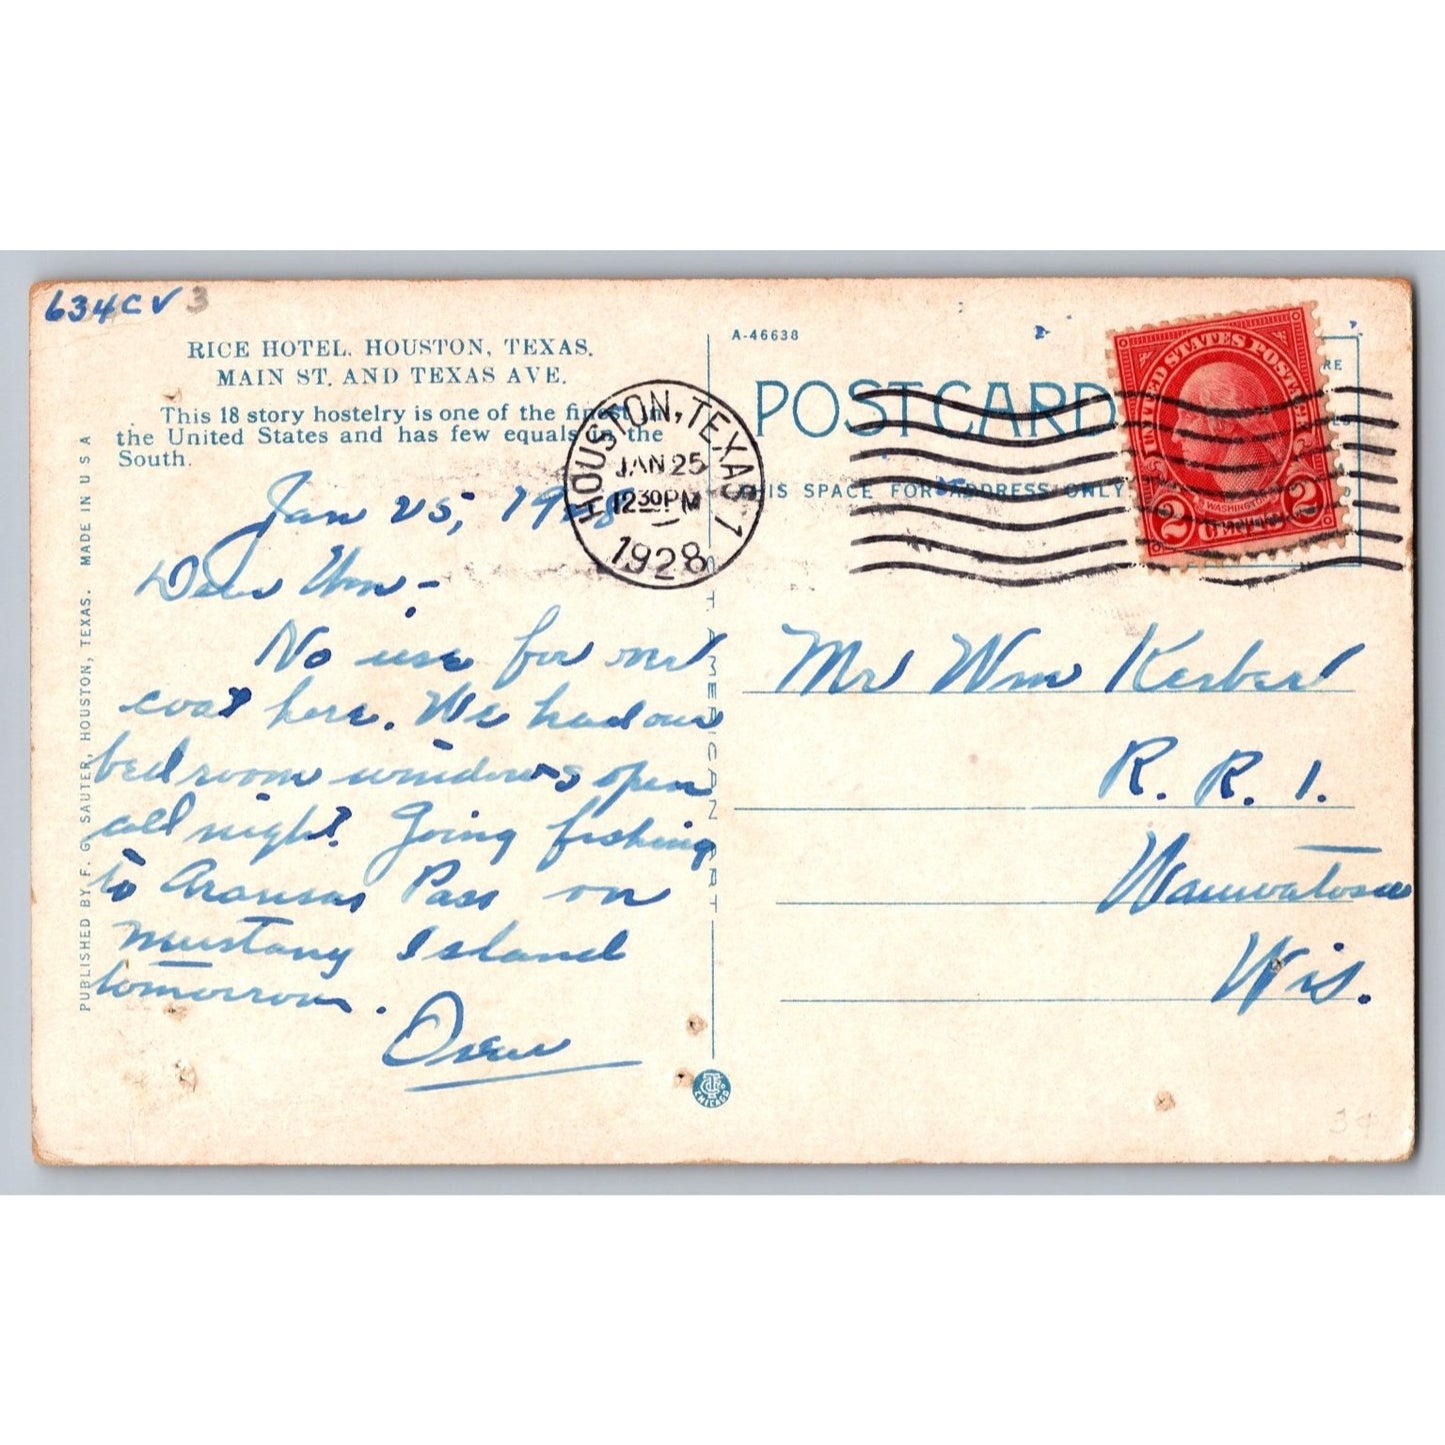 634CV 3
RICE HOTEL. HOUSTON, TEXAS.
MAIN ST. AND TEXAS AVE.
This 18 story hostelry is one of the finest in
the United States and has few equals in the
South.
PUBLISHED BY F. G. SAUTER, HOUSTON, TEXAS. MADE IN U S A
Jan 25, 1928
Dear Wm -
No use for our
coat here. We had our
bed room windows open
all night. Going fishing
to Aransas Pass on
Mustang Island
tomorrow.
HOUSTON, TEXAS 1
JAN 25
12 30 PM
1928
A-46638
POST CARD
THIS SPACE FOR ADDRESS ONLY
UNITED STATES POSTAGE
WASHINGTON
2 CENTS 2
RE
T. AMERICAN ART
CHICAGO
Mr Wm Kerber
R. R. 1.
Wauwatosa
Wis.
3¢